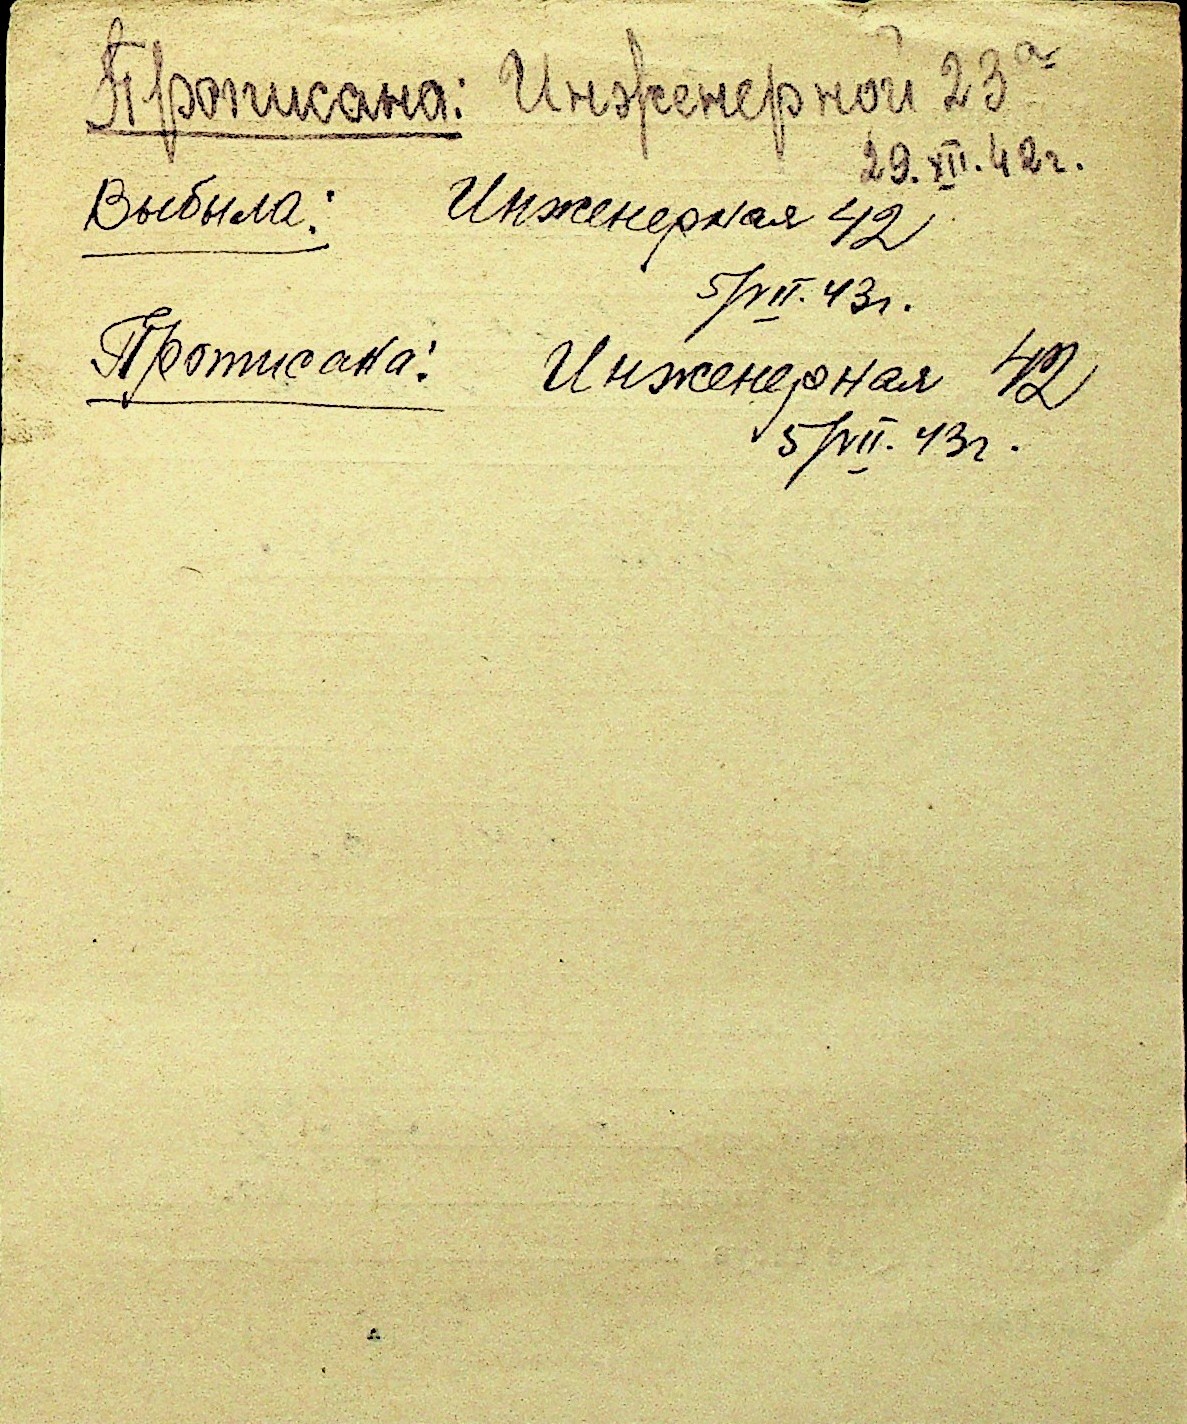 Прописана: Инженерной 23а
29.XII.42г.
Выбыла: Инженерная 42
5/VII.43г.
Прописана: Инженерная 42
5/VII.43г.